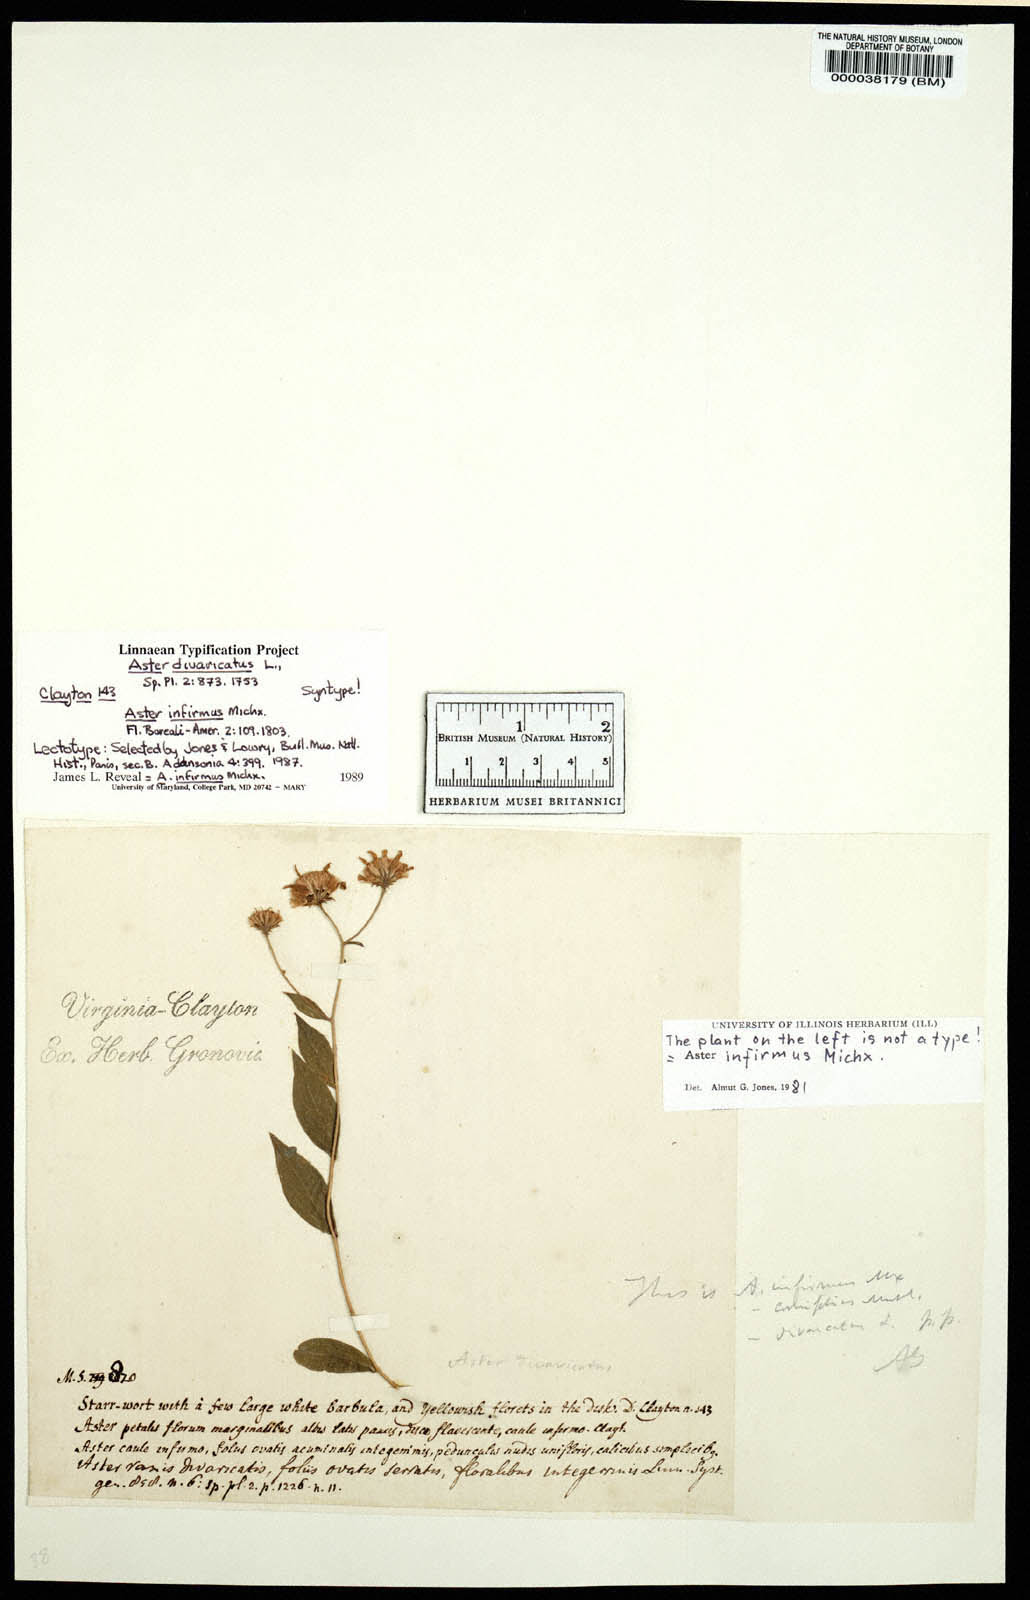 THE NATURAL HISTORY MUSEUM, LONDON
DEPARTMENT OF BOTANY
000038179 (BM)
Linnaean Typification Project
Aster divaricatus L.,
Sp. Pl. 2: 873. 1753
Clayton 143
Syntype!
Aster infirmus Michx.
Fl. Boreali-Amer. 2: 109. 1803.
Lectotype: Selected by Jones & Lowry, Bull. Mus. Natl.
Hist., Paris, sec. B. Adansonia 4: 399. 1987.
James L. Reveal = A. infirmus Michx. 1989
University of Maryland, College Park, MD 20742 – MARY
1 2
BRITISH MUSEUM (NATURAL HISTORY)
1 2 3 4 5
HERBARIUM MUSEI BRITANNICI
Virginia-Clayton
Ex. Herb. Gronovii
UNIVERSITY OF ILLINOIS HERBARIUM (ILL)
The plant on the left is not a type!
= Aster infirmus Michx.
Det. Almut G. Jones, 1981
This is A. infirmus Mx
- cornifolius Muhl.
- divaricatus L. p.p.
AG
Aster divaricatus
M.S. 820
Starr-wort with a few large white barbula, and Yellowish florets in the disk. D. Clayton n. 143
Aster petalis florum marginalibus albis latis paucis, disco flavescente, caule infirmo. Clayt.
Aster caule infirmo, foliis ovatis acuminatis integerrimis, pedunculis nudis unifloris, calicibus simplicibq.
Aster ramis divaricatis, foliis ovatis serratis, floralibus integerrimis Linn. Syst.
gen. 858. n. 6: Sp. pl. 2. p. 1226. n. 11.
38